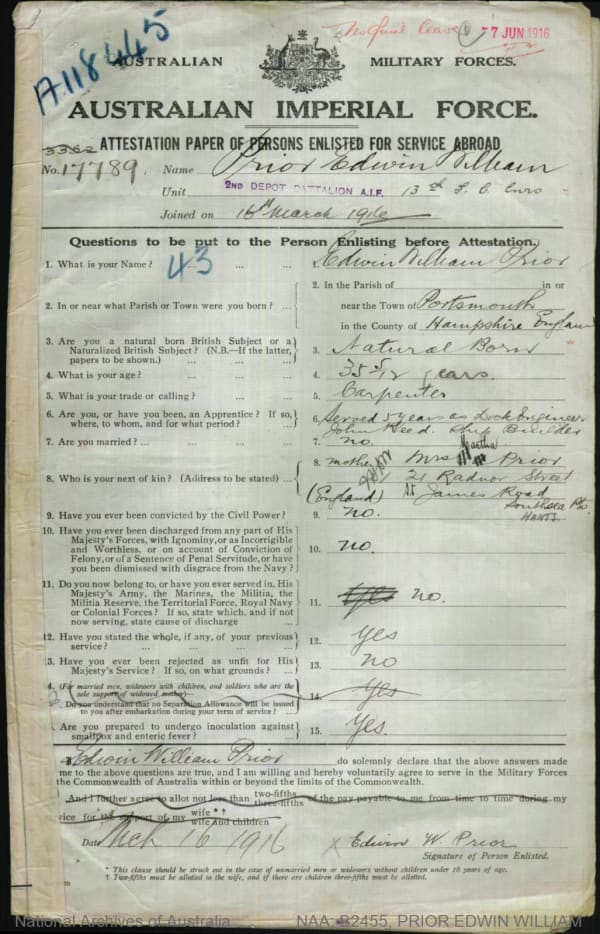 A118445
No final leave
7 JUN 1916
AUSTRALIAN MILITARY FORCES.
AUSTRALIAN IMPERIAL FORCE.
ATTESTATION PAPER OF PERSONS ENLISTED FOR SERVICE ABROAD
3362
No. 17789. Name Prior Edwin William
Unit 2ND DEPOT BATTALION A.I.F. 13th F. C. Engrs
Joined on 16th March 1916
Questions to be put to the Person Enlisting before Attestation.
43
1. What is your Name? ... ... ... 1. Edwin William Prior
2. In or near what Parish or Town were you born? ... 2. In the Parish of in or
near the Town of Portsmouth
in the County of Hampshire England
3. Are you a natural born British Subject or a
Naturalized British Subject? (N.B.—If the latter,
papers to be shown.) ... ... ... 3. Natural Born
4. What is your age? ... ... ... 4. 35 5/12 years.
5. What is your trade or calling? ... ... 5. Carpenter
6. Are you, or have you been, an Apprentice? If so,
where, to whom, and for what period? ... 6. Served 5 years as Dock Engineer
John Reed. Ship Builder
7. Are you married? ... ... ... 7. no.
8. Who is your next of kin? (Address to be stated) ... 8. mother Mrs Martha Prior
21 Radnor Street
(England) St James Road
Southsea Pts.
HANTS.
9. Have you ever been convicted by the Civil Power? 9. no.
10. Have you ever been discharged from any part of His
Majesty's Forces, with Ignominy, or as Incorrigible
and Worthless, or on account of Conviction of
Felony, or of a Sentence of Penal Servitude, or have
you been dismissed with disgrace from the Navy? 10. no.
11. Do you now belong to, or have you ever served in, His
Majesty's Army, the Marines, the Militia, the
Militia Reserve, the Territorial Force, Royal Navy
or Colonial Forces? If so, state which, and if not
now serving, state cause of discharge 11. yes no.
12. Have you stated the whole, if any, of your previous
service? ... ... ... ... 12. yes
3. Have you ever been rejected as unfit for His
Majesty's Service? If so, on what grounds? ... 13. no
4. (For married men, widowers with children, and soldiers who are the
sole support of widowed mother—
Do you understand that no Separation Allowance will be issued
to you after embarkation during your term of service? ... 14. yes
Are you prepared to undergo inoculation against
smallpox and enteric fever? ... ... 15. Yes.
Edwin William Prior do solemnly declare that the above answers made
me to the above questions are true, and I am willing and hereby voluntarily agree to serve in the Military Forces
the Commonwealth of Australia within or beyond the limits of the Commonwealth.
And I further agree to allot not less than two-fifths three-fifths of the pay payable to me from time to time during my
vice for the support of my wife *† wife and children
Date Mch 16 1916 x Edwin W. Prior
Signature of Person Enlisted.
* This clause should be struck out in the case of unmarried men or widowers without children under 18 years of age.
† Two-fifths must be allotted to the wife, and if there are children three-fifths must be allotted.
National Archives of Australia NAA: B2455, PRIOR EDWIN WILLIAM